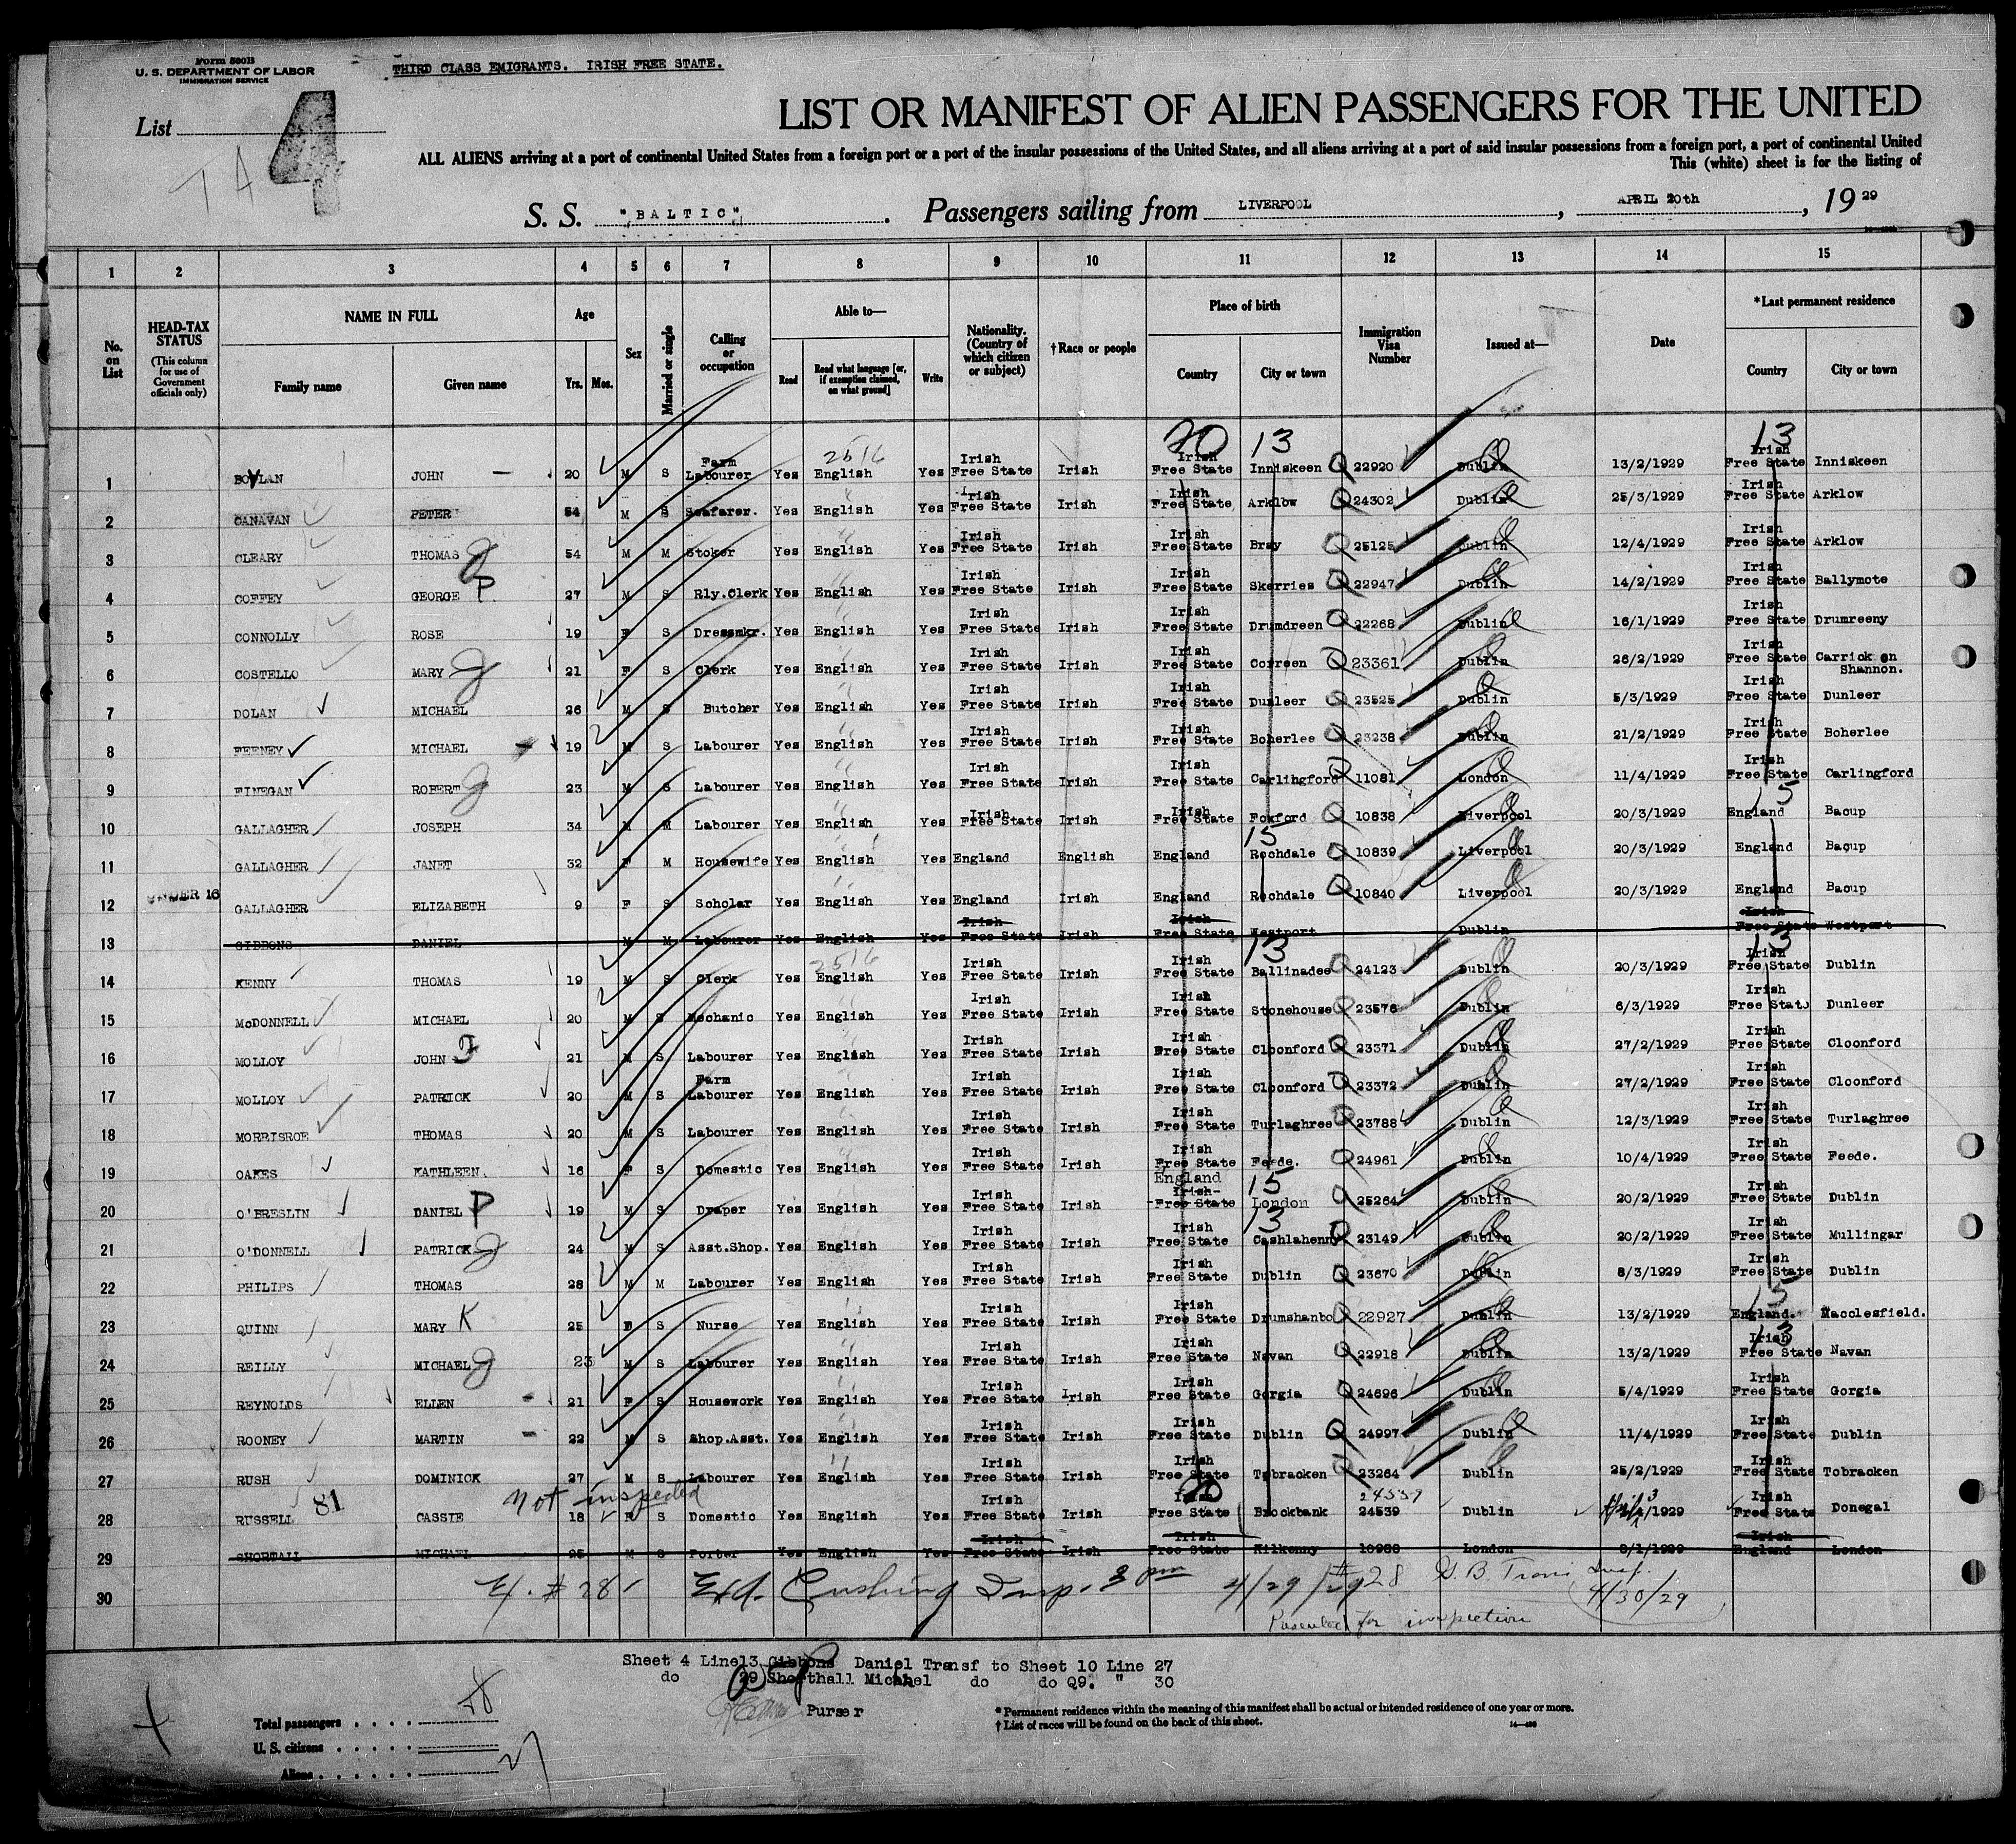 Form 500B
U. S. DEPARTMENT OF LABOR
IMMIGRATION SERVICE
THIRD CLASS EMIGRANTS. IRISH FREE STATE.
List 4
LIST OR MANIFEST OF ALIEN PASSENGERS FOR THE UNITED
ALL ALIENS arriving at a port of continental United States from a foreign port or a port of the insular possessions of the United States, and all aliens arriving at a port of said insular possessions from a foreign port, a port of continental United
This (white) sheet is for the listing of
S. S. "BALTIC". Passengers sailing from LIVERPOOL, APRIL 20th, 1929
1 2 3 4 5 6 7 8 9 10 11 12 13 14 15
No. on List
HEAD-TAX STATUS (This column for use of Government officials only)
NAME IN FULL
Family name Given name
Age Yrs. Mos.
Sex
Married or single
Calling or occupation
Able to—
Read Read what language [or, if exemption claimed, on what ground] Write
Nationality. (Country of which citizen or subject)
†Race or people
Place of birth
Country City or town
Immigration Visa Number
Issued at—
Date
*Last permanent residence
Country City or town
20 13 13
2516
1 BOYLAN JOHN 20 M S Farm Labourer Yes English Yes Irish Free State Irish Irish Free State Inniskeen Q 22920 Dublin 13/2/1929 Irish Free State Inniskeen
2 CANAVAN PETER 54 M S Seafarer. Yes English Yes Irish Free State Irish Irish Free State Arklow Q 24302 Dublin 25/3/1929 Irish Free State Arklow
3 CLEARY THOMAS 54 M M Stoker Yes English Yes Irish Free State Irish Irish Free State Bray Q 25125 Dublin 12/4/1929 Irish Free State Arklow
4 COFFEY GEORGE P 27 M S Rly.Clerk Yes English Yes Irish Free State Irish Irish Free State Skerries Q 22947 Dublin 14/2/1929 Irish Free State Ballymote
5 CONNOLLY ROSE 19 F S Dressmkr. Yes English Yes Irish Free State Irish Irish Free State Drumdreen Q 22268 Dublin 16/1/1929 Irish Free State Drumreeny
6 COSTELLO MARY 21 F S Clerk Yes English Yes Irish Free State Irish Irish Free State Correen Q 23361 Dublin 26/2/1929 Irish Free State Carrick on Shannon.
7 DOLAN MICHAEL 26 M S Butcher Yes English Yes Irish Free State Irish Irish Free State Dunleer Q 23525 Dublin 5/3/1929 Irish Free State Dunleer
8 FEENEY MICHAEL 19 M S Labourer Yes English Yes Irish Free State Irish Irish Free State Boherlee Q 23238 Dublin 21/2/1929 Irish Free State Boherlee
9 FINEGAN ROBERT 23 M S Labourer Yes English Yes Irish Free State Irish Irish Free State Carlingford Q 11081 London 11/4/1929 Irish Free State Carlingford
15
10 GALLAGHER JOSEPH 34 M M Labourer Yes English Yes Irish Free State Irish Irish Free State Foxford Q 10838 Liverpool 20/3/1929 England Bacup
15
11 GALLAGHER JANET 32 F M Housewife Yes English Yes England English England Rochdale Q 10839 Liverpool 20/3/1929 England Bacup
12 UNDER 16 GALLAGHER ELIZABETH 9 F S Scholar Yes English Yes England Irish England Rochdale Q 10840 Liverpool 20/3/1929 England Bacup
13 GIBBONS DANIEL M M Labourer Yes English Yes Irish Free State Irish Irish Free State Westport Dublin Irish Free State Westport
2516 13 13
14 KENNY THOMAS 19 M S Clerk Yes English Yes Irish Free State Irish Irish Free State Ballinadee Q 24123 Dublin 20/3/1929 Irish Free State Dublin
15 McDONNELL MICHAEL 20 M S Mechanic Yes English Yes Irish Free State Irish Irish Free State Stonehouse Q 23576 Dublin 6/3/1929 Irish Free State Dunleer
16 MOLLOY JOHN F 21 M S Labourer Yes English Yes Irish Free State Irish Irish Free State Cloonford Q 23371 Dublin 27/2/1929 Irish Free State Cloonford
17 MOLLOY PATRICK 20 M S Farm Labourer Yes English Yes Irish Free State Irish Irish Free State Cloonford Q 23372 Dublin 27/2/1929 Irish Free State Cloonford
18 MORRISROE THOMAS 20 M S Labourer Yes English Yes Irish Free State Irish Irish Free State Turlaghree Q 23788 Dublin 12/3/1929 Irish Free State Turlaghree
19 OAKES KATHLEEN. 16 F S Domestic Yes English Yes Irish Free State Irish Irish Free State Feede. Q 24961 Dublin 10/4/1929 Irish Free State Feede.
15
20 O'BRESLIN DANIEL P 19 M S Draper Yes English Yes Irish Free State Irish England Irish Free State London Q 25264 Dublin 20/2/1929 Irish Free State Dublin
13
21 O'DONNELL PATRICK 24 M S Asst.Shop. Yes English Yes Irish Free State Irish Irish Free State Cashlahenny Q 23149 Dublin 20/2/1929 Irish Free State Mullingar
22 PHILIPS THOMAS 28 M M Labourer Yes English Yes Irish Free State Irish Irish Free State Dublin Q 23670 Dublin 8/3/1929 Irish Free State Dublin
15
23 QUINN MARY K 25 F S Nurse Yes English Yes Irish Free State Irish Irish Free State Drumshanbo Q 22927 Dublin 13/2/1929 England. Macclesfield.
13
24 REILLY MICHAEL 23 M S Labourer Yes English Yes Irish Free State Irish Irish Free State Navan Q 22918 Dublin 13/2/1929 Irish Free State Navan
25 REYNOLDS ELLEN 21 F S Housework Yes English Yes Irish Free State Irish Irish Free State Gorgia Q 24696 Dublin 5/4/1929 Irish Free State Gorgia
26 ROONEY MARTIN 22 M S Shop.Asst. Yes English Yes Irish Free State Irish Irish Free State Dublin Q 24997 Dublin 11/4/1929 Irish Free State Dublin
27 RUSH DOMINICK 27 M S Labourer Yes English Yes Irish Free State Irish Irish Free State Tobracken Q 23264 Dublin 25/2/1929 Irish Free State Tobracken
81 Not inspected 20 24539
28 RUSSELL CASSIE 18 F S Domestic Yes English Yes Irish Free State Irish Irish Free State Brookbank 24539 Dublin April 3/1929 Irish Free State Donegal
29 SHORTALL MICHAEL 25 M S Porter Yes English Yes Irish Free State Irish Irish Free State Kilkenny 10988 London 8/1/1929 Irish England London
30 Ex. # 28 Exd. Cushing Insp. 3 pm 4/29/29 #28 Insp. 4/30/29
Presented for inspection
Sheet 4 Line13 Gibbons Daniel Transf to Sheet 10 Line 27
do 29 Shorthall Michael do do Q9. " 30
Purser
* Permanent residence within the meaning of this manifest shall be actual or intended residence of one year or more.
† List of races will be found on the back of this sheet.
Total passengers 28
U. S. citizens
Aliens 27